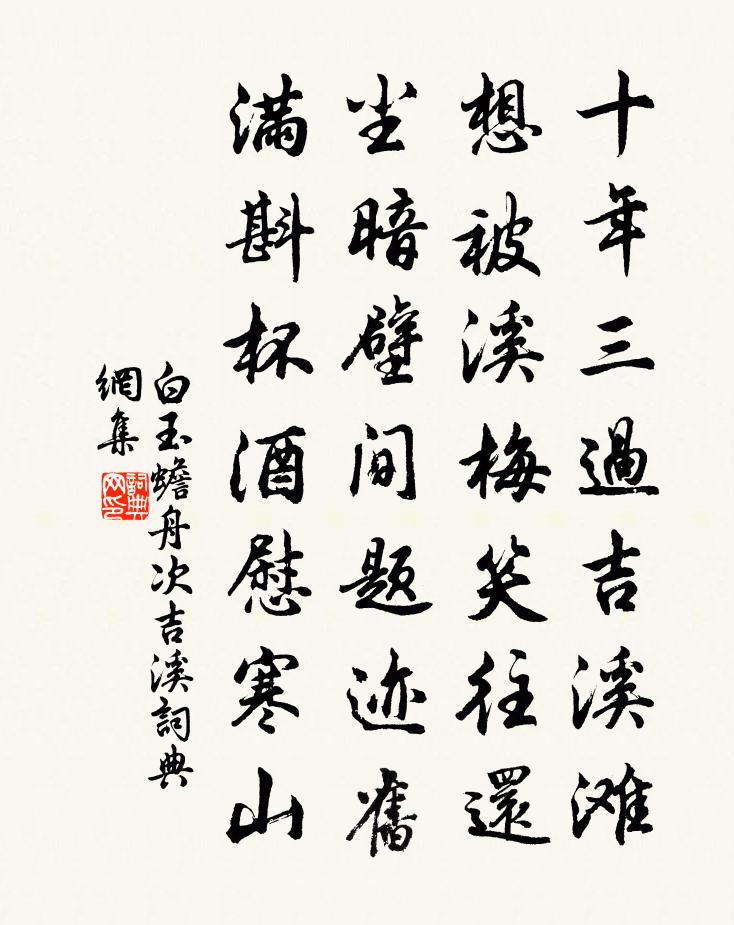 十年三過吉溪滩
想被溪梅笑往還
尘暗壁间题迹舊
满斟杯酒慰寒山
白玉蟾舟次吉溪詞典
網集
詞典
网印